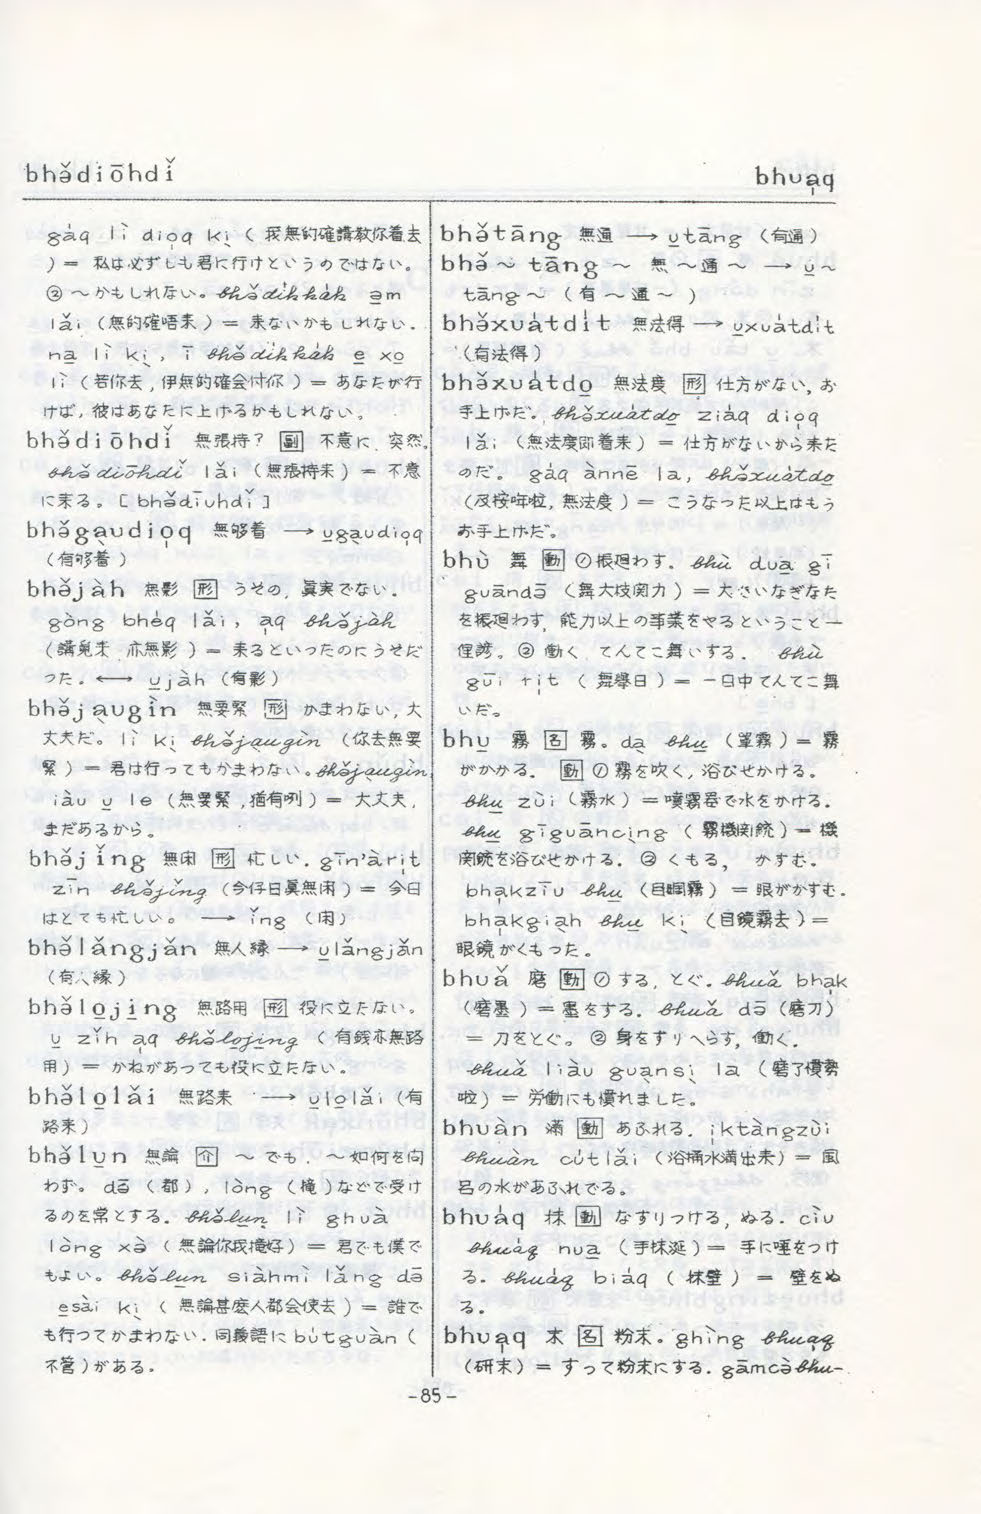 bhə̌diōhdǐ
bhua̩q
gàq lì dio̩q ki̩ ( 我無的確講教你着去
) = 私は必ずしも君に行けというのではない。
② 〜かもしれない。bhə̌dı̍kkàk əm
lǎi (無的確唔来) = 来ないかもしれない.
nà lì ki̩, ī bhə̌dı̍kkàk e xo
lì (若你去,伊無的確会付你) = あなたが行
けば,彼はあなたに上げるかもしれない。
bhə̌diōhdǐ 無張持? 副 不意に, 突然.
bhə̌diōhdǐ lǎi (無張持来) = 不意
に来る。[bhə̌diūhdǐ]
bhə̌ga̱udio̩q 無够着 → u̱ga̱udio̩q
(有够着)
bhə̌jàh 無影 形 うその, 眞実でない.
gòng bhèq lǎi, a̩q bhə̌jàh
(講覓来,亦無影) = 来るといったのにうそだ
った。←→ u̱jàh (有影)
bhə̌ja̱ugìn 無要緊 形 かまわない,大
丈夫だ。lì ki̩ bhə̌ja̱ugìn (你去無要
緊) = 君は行ってもかまわない。bhə̌ja̱ugìn,
iàu u̱ le (無要緊,猶有咧) = 大丈夫,
まだあるから。
bhə̌jǐng 無閑 形 忙しい. gīn'àri̍t
zīn bhə̌jǐng (今仔日眞無閑) = 今日
はとても忙しい。←→ ǐng (閑)
bhə̌lǎngjǎn 無人縁 → u̱lǎngjǎn
(有人縁)
bhə̌lo̱ji̱ng 無路用 形 役に立たない。
u̱ zǐh a̩q bhə̌lo̱ji̱ng (有銭亦無路
用) = かねがあっても役に立たない.
bhə̌lo̱lǎi 無路来 → u̱lo̱lǎi (有
路来)
bhə̌lu̱n 無論 介 〜でも. 〜如何を問
わず。də̄ (都), lòng (攏)などで受け
るのを常とする. bhə̌lu̱n lì ghuà
lòng xə̀ (無論你我攏好) = 君でも僕で
もよい。bhə̌lu̱n siàhmì lǎng də̄
esài ki̩ (無論甚麼人都会使去) = 誰で
も行ってかまわない. 同義語に bútguàn (
不管)がある。
bhə̌tāng 無通 → u̱tāng (有通)
bhə̌〜tāng〜 無〜通〜 → u̱〜
tāng〜 (有〜通〜)
bhə̌xuàtdi̍t 無法得 → u̱xuàtdi̍t
(有法得)
bhə̌xuàtdo̱ 無法度 形 仕方がない, お
手上げだ。bhə̌xuàtdo̱ ziàq dio̩q
lǎi (無法度即着来) = 仕方がないから来た
のだ。gàq ànnē la, bhə̌xuàtdo̱
(及桉年啦,無法度) = こうなった以上はもう
お手上げだ。
bhù 舞 動 ①振廻わす. bhù dua̱ gī
guāndə̄ (舞大枝関刀) = 大きいなぎなた
を振廻わす, 能力以上の事業をやるということ—
俚諺。② 働く, てんてこ舞いする. bhù
gui ri̍t (舞舉日) = 一日中てんてこ舞
いだ。
bhu̱ 霧 名 霧。dà bhu̱ (罩霧) = 霧
がかかる. 動 ①霧を吹く, 浴びせかける.
bhu̱ zùi (霧水) = 噴霧器で水をかける.
bhu̱ gīguāncìng (霧機関銃) = 機
関銃を浴びせかける. ② くもる, かすむ.
bha̍kzīu bhu̱ (目睭霧) = 眼がかすむ.
bha̍kgiah bhu̱ ki̩ (目鏡霧去) =
眼鏡がくもった。
bhuǎ 磨 動 ①する, とぐ. bhuǎ bha̍k
(磨墨) = 墨をする. bhuǎ də̄ (磨刀)
= 刀をとぐ。② 身をすりへらす, 働く.
bhuǎ liàu guansi la (磨了慣勢
啦) = 労働にも慣れました。
bhuàn 満 動 あふれる. i̍ktàngzùi
bhuàn cútlǎi (浴桶水満出来) = 風
呂の水があふれでる。
bhuàq 抹 動 なすりつける, ぬる. cìu
bhuàq nua̱ (手抹涎) = 手に唾をつけ
る. bhuàq biàq (抹壁) = 壁をぬ
る。
bhua̩q 末 名 粉末。ghìng bhua̩q
(研末) = すって粉末にする. gāmcə̀ bhu-
-85-